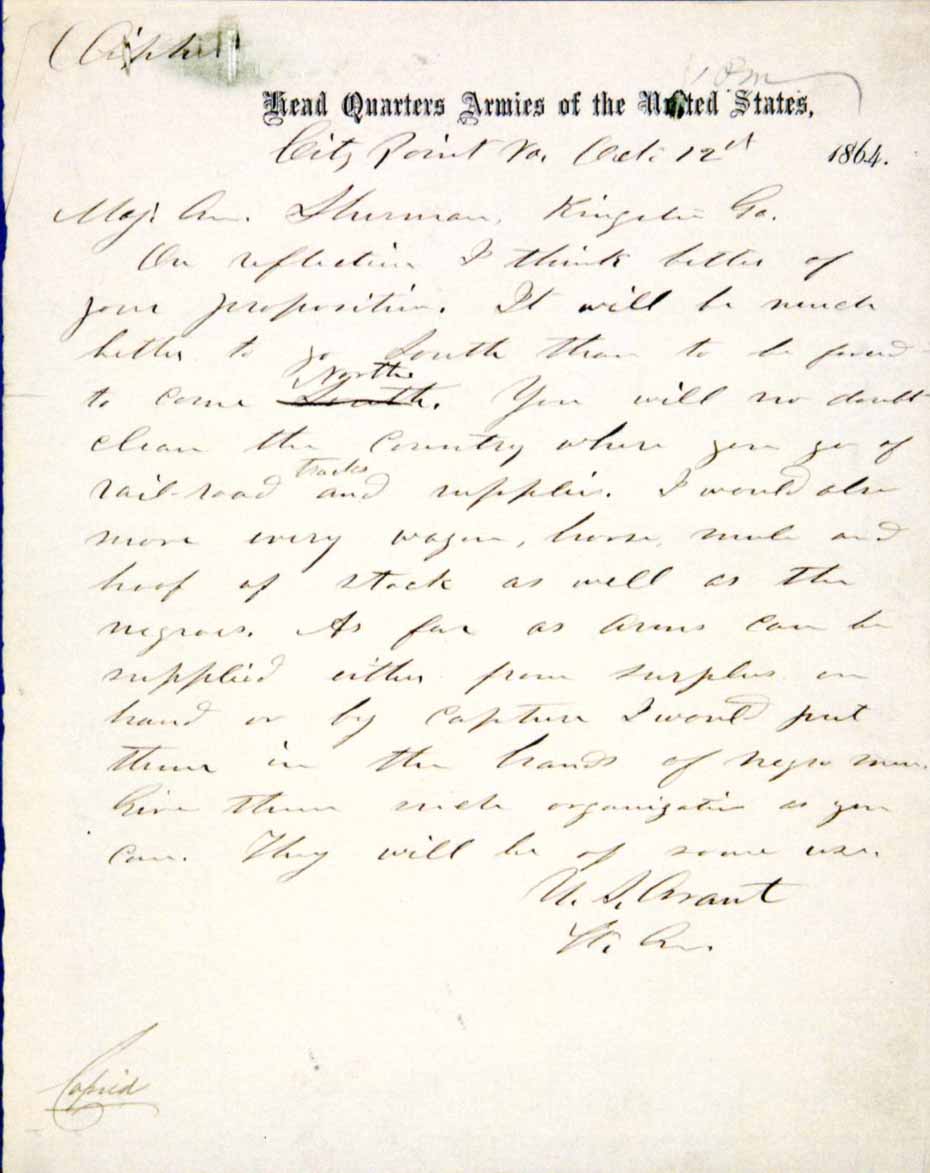 (Cipher)
1 Pm
Head Quarters Armies of the United States,
City Point Va. Oct. 12th 1864.
Maj. Gn. Sherman, Kingston Ga.
On reflection I think better of
your proposition. It will be much
better to go South than to be forced
North
to come South. You will no doubt
clean the country where you go of
tracks
rail-road and supplies. I would also
move every wagon, horse, mule and
hoof of stock as well as the
negroes. As far as arms can be
supplied either from surplus on
hand or by capture I would put
them in the hands of negro men.
Give them such organization as you
can. They will be of some use.
U. S. Grant
Lt. Gn.
Copied